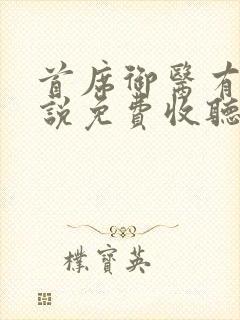 首席御醫有
說免費收聽
樸寶英